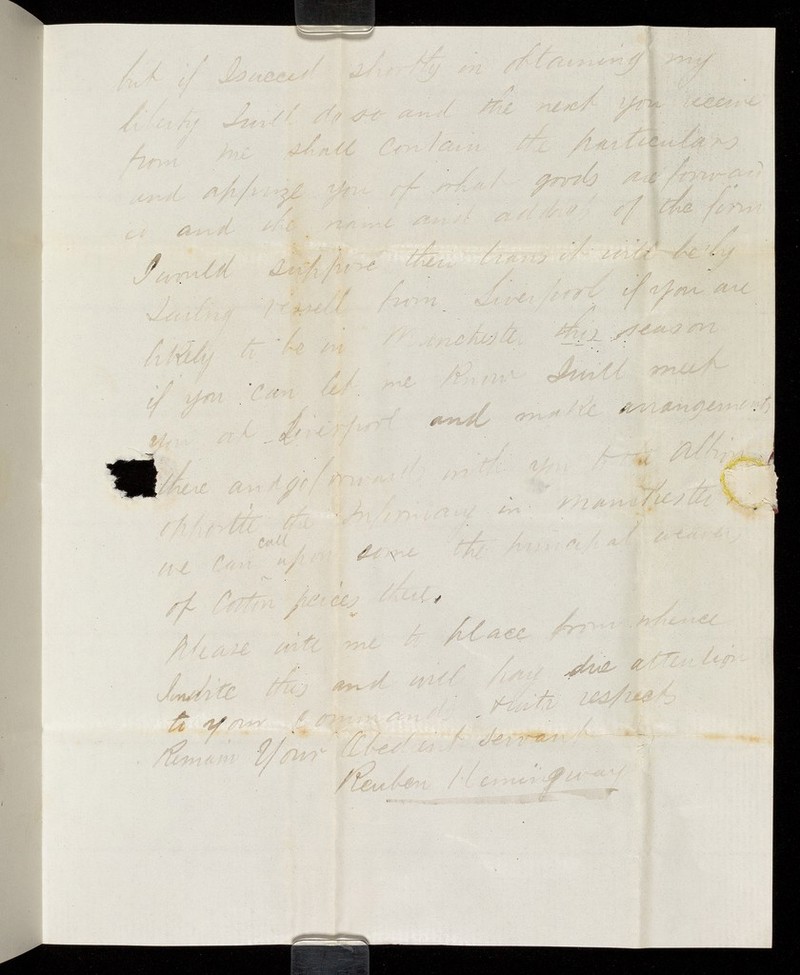 but if I succeed shortly in obtaining my
liberty I will do so and the next you receive
from me shall contain the particulars
and apprize you of what goods are forward
and the name and address of the firm
I would suppose their transit will be by
Sailing vessell from Liverpool if you are
likely to be in Manchester this season
if you can let me know I will meet
you at Liverpool and make arrangements
there and go forward with you to the Albion
opposite the Infirmary in Manchester
we can call upon some the principal weavers
of Cotton peices there.
Please write me to place from whence
I indite this and will pay due attention
to your command with respects
Remain Your Obedient Servant
Reuben Hemingway